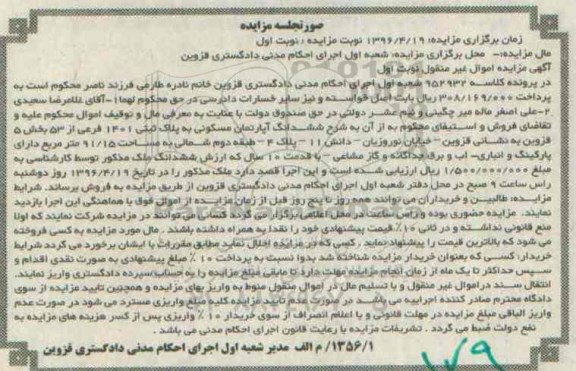 صورتجلسه مزایده
زمان برگزاری مزایده: ۱۳۹۶/۴/۱۹ نوبت مزایده : نوبت اول
مال مزایده:- محل برگزاری مزایده: شعبه اول اجرای احکام مدنی دادگستری قزوین
آگهی مزایده اموال غیر منقول نوبت اول
در پرونده کلاسه ۹۵۲۹۳۲ شعبه اول اجرای احکام مدنی دادگستری قزوین خانم نادره طارمی فرزند ناصر محکوم است به
پرداخت ۳۰۸/۱۶۹/۰۰۰ ریال بابت اصل خواسته و نیز سایر خسارات دادرسی در حق محکوم لهما ۱-آقای غلامرضا سعیدی
۲-علی اصغر ماله میر چگینی و نیم عشر دولتی در حق صندوق دولت با عنایت به معرفی مال و توقیف اموال محکوم علیه و
تقاضای فروش و استیفای محکوم به از آن به شرح ششدانگ آپارتمان مسکونی به پلاک ثبتی ۱۴۰۱ فرعی از ۵۳ بخش ۵
قزوین به نشانی قزوین – خیابان نوروزیان – دانش ۱۱ – پلاک ۴ – طبقه دوم شمالی به مساحت ۹۱/۱۵ متر مربع دارای
پارکینگ و انباری- آب و برق جداگانه و گاز مشاعی – با قدمت ۱۰ سال که ارزش ششدانگ ملک مذکور توسط کارشناسی به
مبلغ ۱/۵۰۰/۰۰۰/۰۰۰ ریال ارزیابی شده است و این اجرا قصد دارد ملک مذکور را در تاریخ ۱۳۹۶/۴/۱۹ روز دوشنبه
راس ساعت ۹ صبح در محل دفتر شعبه اول اجرای احکام مدنی دادگستری قزوین از طریق مزایده به فروش برساند. شرایط
مزایده: طالبین و خریداران می توانند همه روز تا پنج روز قبل از زمان مزایده از اموال فوق با هماهنگی این اجرا بازدید
نمایند. مزایده حضوری بوده و راس ساعت در محل اعلامی برگزار می گردد کسانی می توانند در مزایده شرکت نمایند که اولا
منع قانونی نداشته و در ثانی ۱۰٪ قیمت پیشنهادی خود را نقدا به همراه داشته باشند . مال مورد مزایده به کسی فروخته
می شود که بالاترین قیمت را پیشنهاد نماید . کسی که در مزایده اخلال نماید مطابق مقررات با ایشان برخورد می گردد شرایط
خریدار: کسی که بعنوان خریدار مزایده شناخته شد بدوا نسبت به پرداخت ۱۰ ٪ مبلغ پیشنهادی به صورت نقدی اقدام و
سپس حداکثر تا یک ماه از زمان انجام مزایده مهلت دارد تا مابقی مبلغ مزایده را به حساب سپرده دادگستری واریز نمایند.
انتقال سند در اموال غیر منقول و یا تسلیم مال در اموال منقول منوط به واریز بهای مزایده و همچنین تایید مزایده از سوی
دادگاه محترم صادر کننده اجراییه می باشد در صورت عدم تایید مزایده کلیه مبلغ واریزی مسترد می شود در صورت عدم
واریز الباقی مبلغ مزایده در مهلت قانونی و یا اعلام انصراف از سوی خریدار ۱۰ ٪ واریزی پس از کسر هزینه های مزایده به
نفع دولت ضبط می گردد . تشریفات مزایده با رعایت قانون اجرای احکام مدنی می باشد .
۱۳۵۶/۱/ م الف مدیر شعبه اول اجرای احکام مدنی دادگستری قزوین
۱۷۹